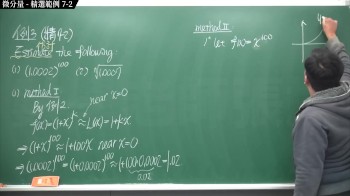 微分量 - 精選範例 7-2
例3 (精42)
Estimate the following
(1) (1.0002)^100 (2) ∜1.0007
(1) method I
By 例2. near x=0
f(x)=(1+x)^k ≈ L(x)=1+kx
⇒ (1+x)^100 ≈ 1+100x near x=0
⇒ (1.0002)^100 = (1+0.0002)^100 ≈ 1+100×0.0002=1.02
0.02
method II
1° Let f(x)=x^100